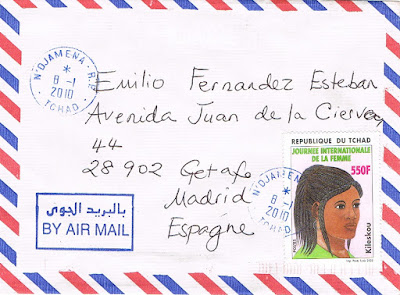 N'DJAMENA - R.P.
*
8 -1
2010
TCHAD
Emilio Fernandez Esteban
Avenida Juan de la Cierva,
44
28902 Getafe
Madrid
Espagne
بالبريد الجوى
BY AIR MAIL
REPUBLIQUE DU TCHAD
JOURNEE INTERNATIONALE
DE LA FEMME
550F
Kileskou
POSTES
N'DJAMENA
*
8 -1
2010
TCHAD